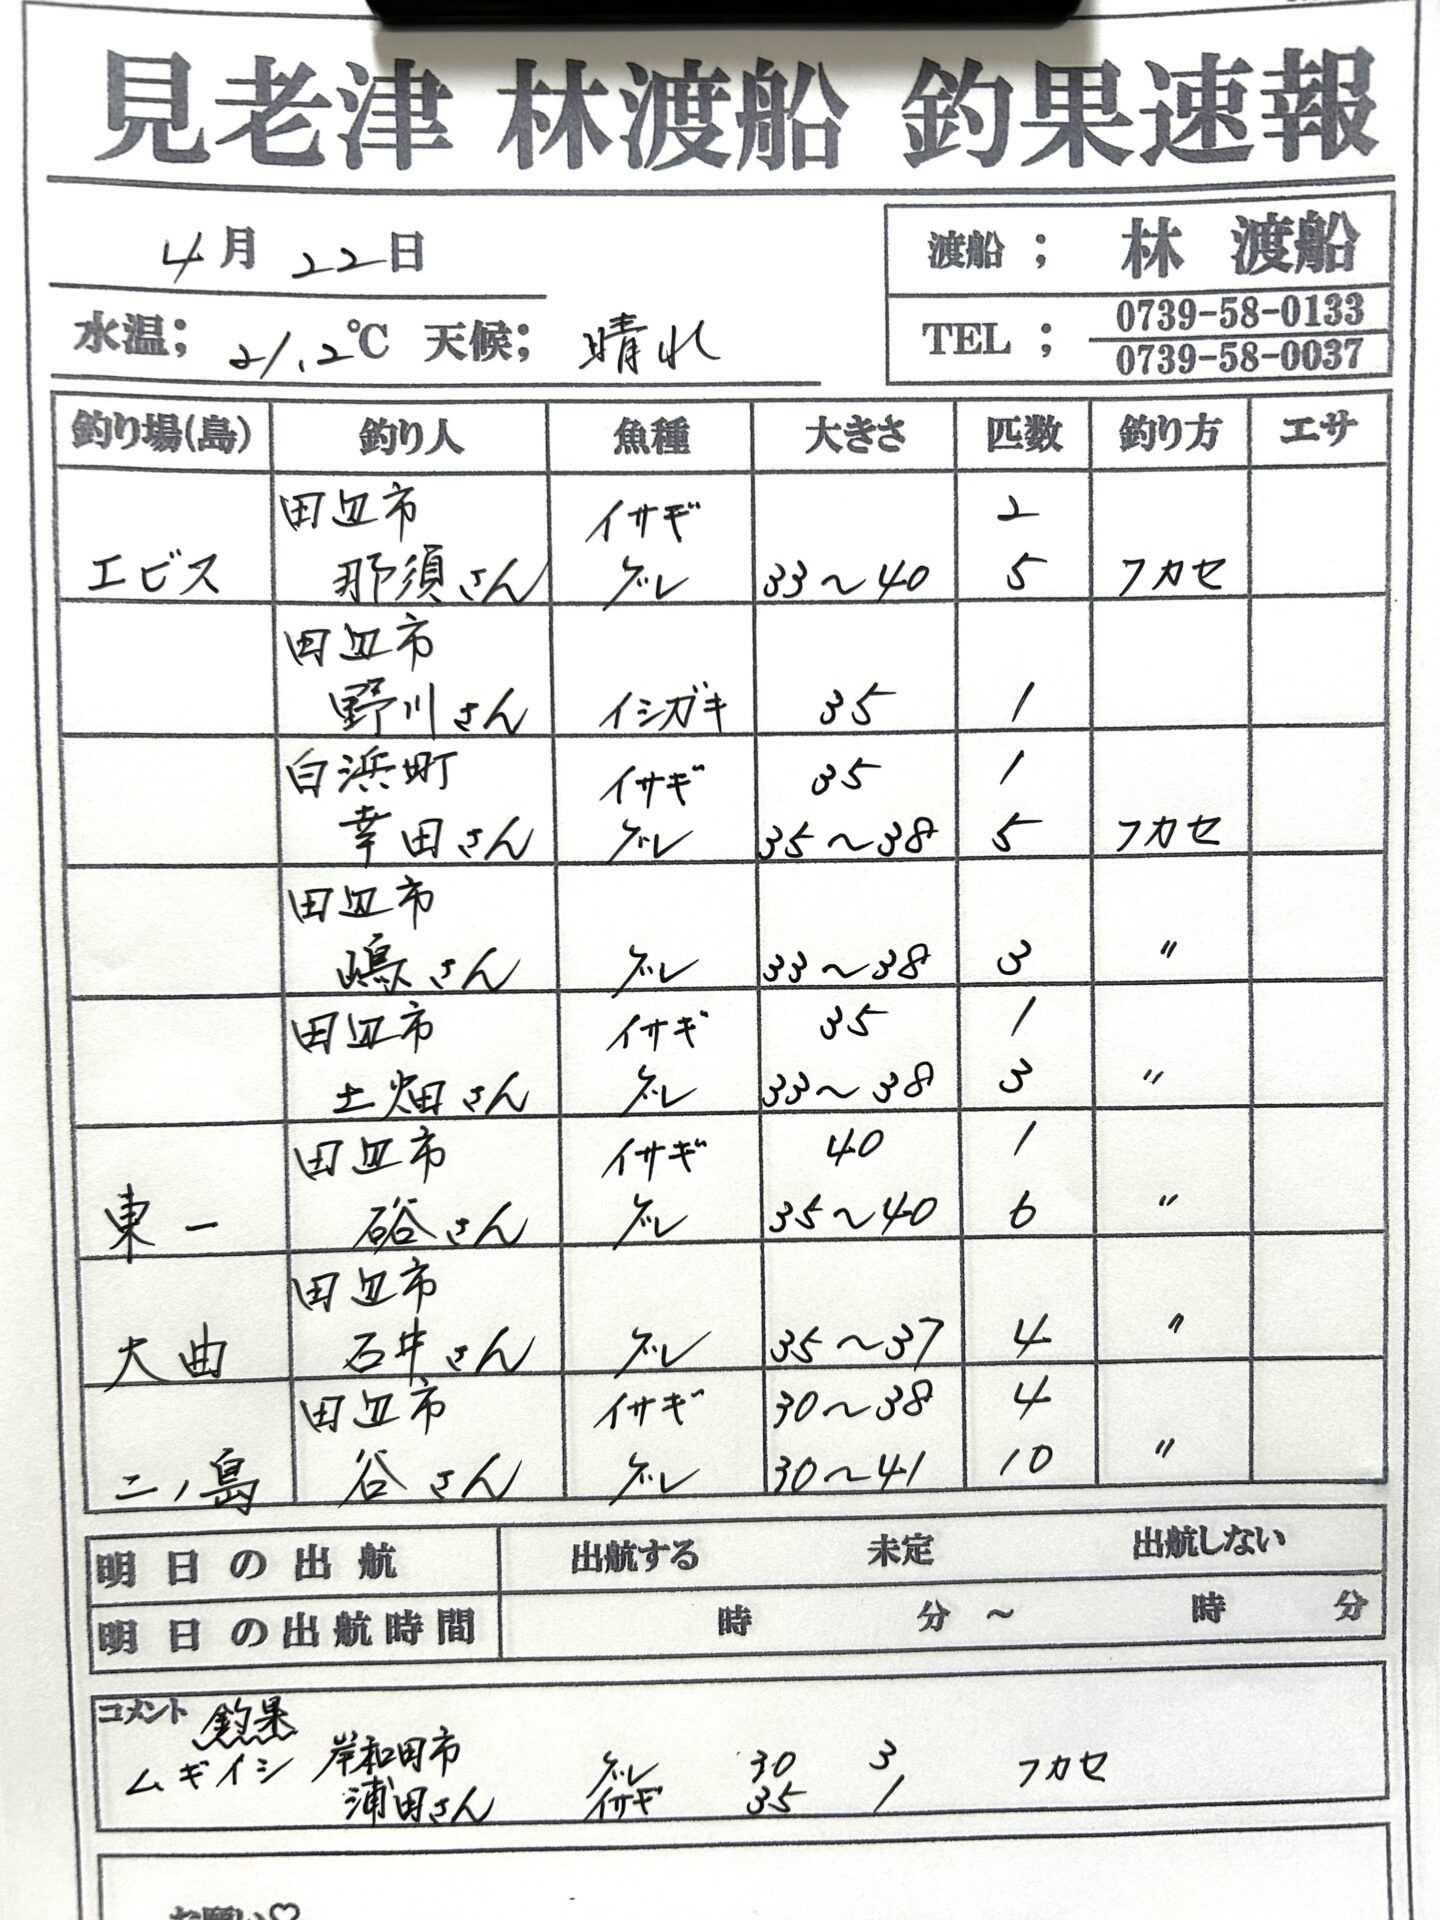 見老津 林渡船 釣果速報
4月22日
渡船; 林 渡船
水温; 21.2℃ 天候; 晴れ
TEL; 0739-58-0133
0739-58-0037
釣り場(島) 釣り人 魚種 大きさ 匹数 釣り方 エサ
田辺市 イサギ 2
エビス 那須さん グレ 33～40 5 フカセ
田辺市
野川さん イシガキ 35 1
白浜町 イサギ 35 1
幸田さん グレ 35～38 5 フカセ
田辺市
嶋さん グレ 33～38 3 〃
田辺市 イサギ 35 1
土畑さん グレ 33～38 3 〃
田辺市 イサギ 40 1
東一 硲さん グレ 35～40 6 〃
田辺市
大曲 石井さん グレ 35～37 4 〃
田辺市 イサギ 30～38 4
二ノ島 谷さん グレ 30～41 10 〃
明日の出航 出航する 未定 出航しない
明日の出航時間 時 分 ～ 時 分
コメント 釣果
ムギイシ 岸和田市 グレ 30 3 フカセ
浦田さん イサギ 35 1
お願い♡